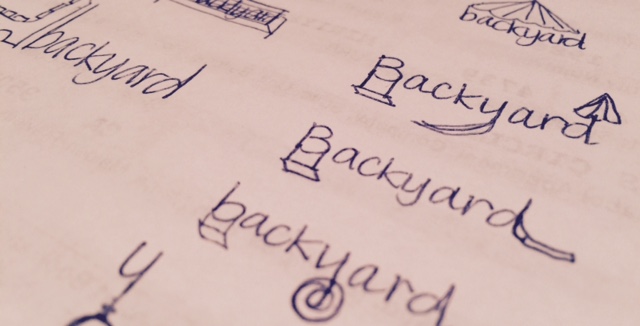 backyard
backyard
backyard
Backyard
Backyard
backyard
y